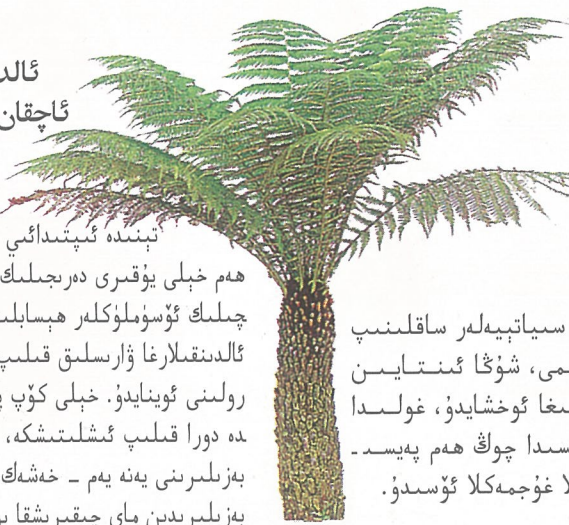 ئالد
ئاچقان
تېنىدە ئىپتىدائىي
ھەم خېلى يۇقىرى دەرىجىلىك
چىلىك ئۆسۈملۈكلەر ھېسابلى
ئالدىنقىلارغا ۋارىسلىق قىلىپ
رولىنى ئوينايدۇ. خېلى كۆپ
دە دورا قىلىپ ئىشلىتىشكە،
بەزىلىرىنى يەنە يەم ـ خەشەك
بەزىلىرىدىن ماي چىقىرىشقا
سىياتىيەلەر ساقلىنىپ
مى، شۇڭا ئىنتايىن
ىغا ئوخشايدۇ، غولىدا
ىسىدا چوڭ ھەم پەيسـ
لا غۇجمەكلا ئۆسىدۇ.